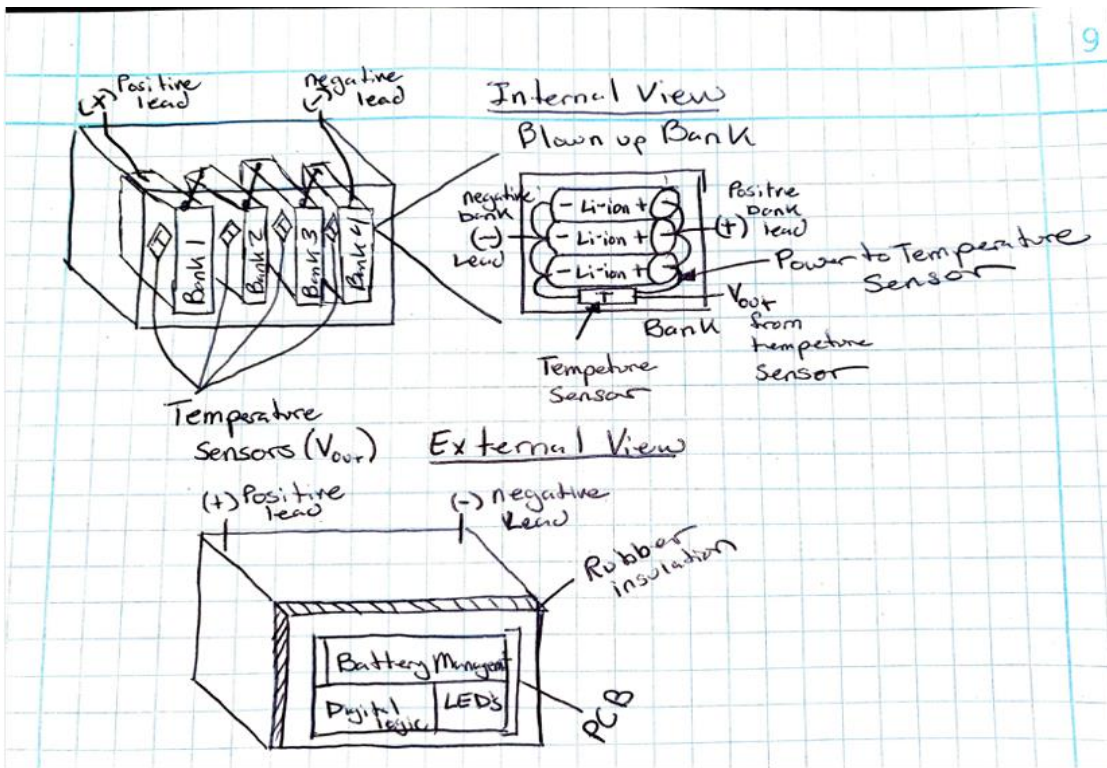 9
(+) Positive
lead
negative
(-) lead
Internal View
Blown up Bank
Bank 1
Bank 2
Bank 3
Bank 4
negative
bank
(-)
Lead
- Li-ion +
- Li-ion +
- Li-ion +
T
Positive
bank
(+) lead
Power to Temperature
Sensor
Bank
Vout
from
tempeture
Sensor
Tempeture
Sensor
Temperature
Sensors (Vout)
External View
(+) Positive
lead
(-) negative
Lead
Rubber
insulation
Battery Managemt
Digital
logic
LED's
PCB